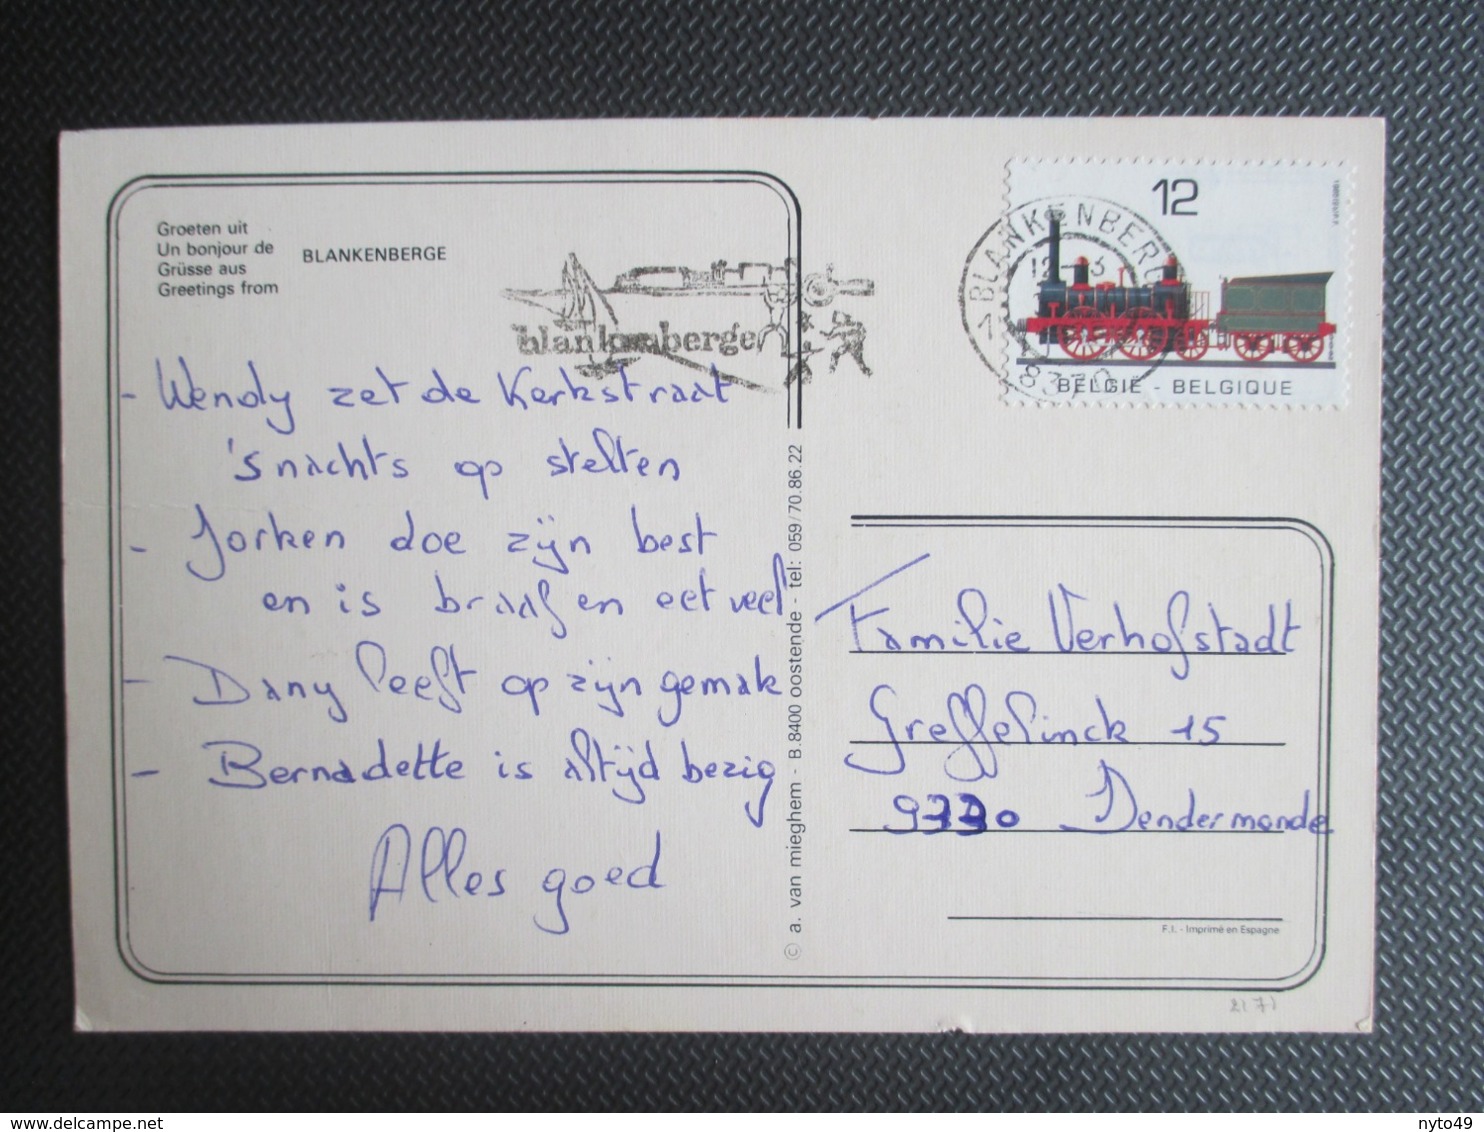 Groeten uit
Un bonjour de
Grüsse aus
Greetings from
BLANKENBERGE
blankenberge
BLANKENBERGE
8370
12
BELGIË - BELGIQUE
- Wendy zet de Kerkstraat
's nachts op stelten
- Jorken doe zijn best
en is braaf en eet veel
- Dany leeft op zijn gemak
- Bernadette is altijd bezig
Alles goed
© a. van mieghem - B.8400 oostende - tel: 059/70.86.22
Familie Verhofstadt
Greffelinck 15
9330 Dendermonde
F.I. - Imprimé en Espagne
delcampe.net
nyto49